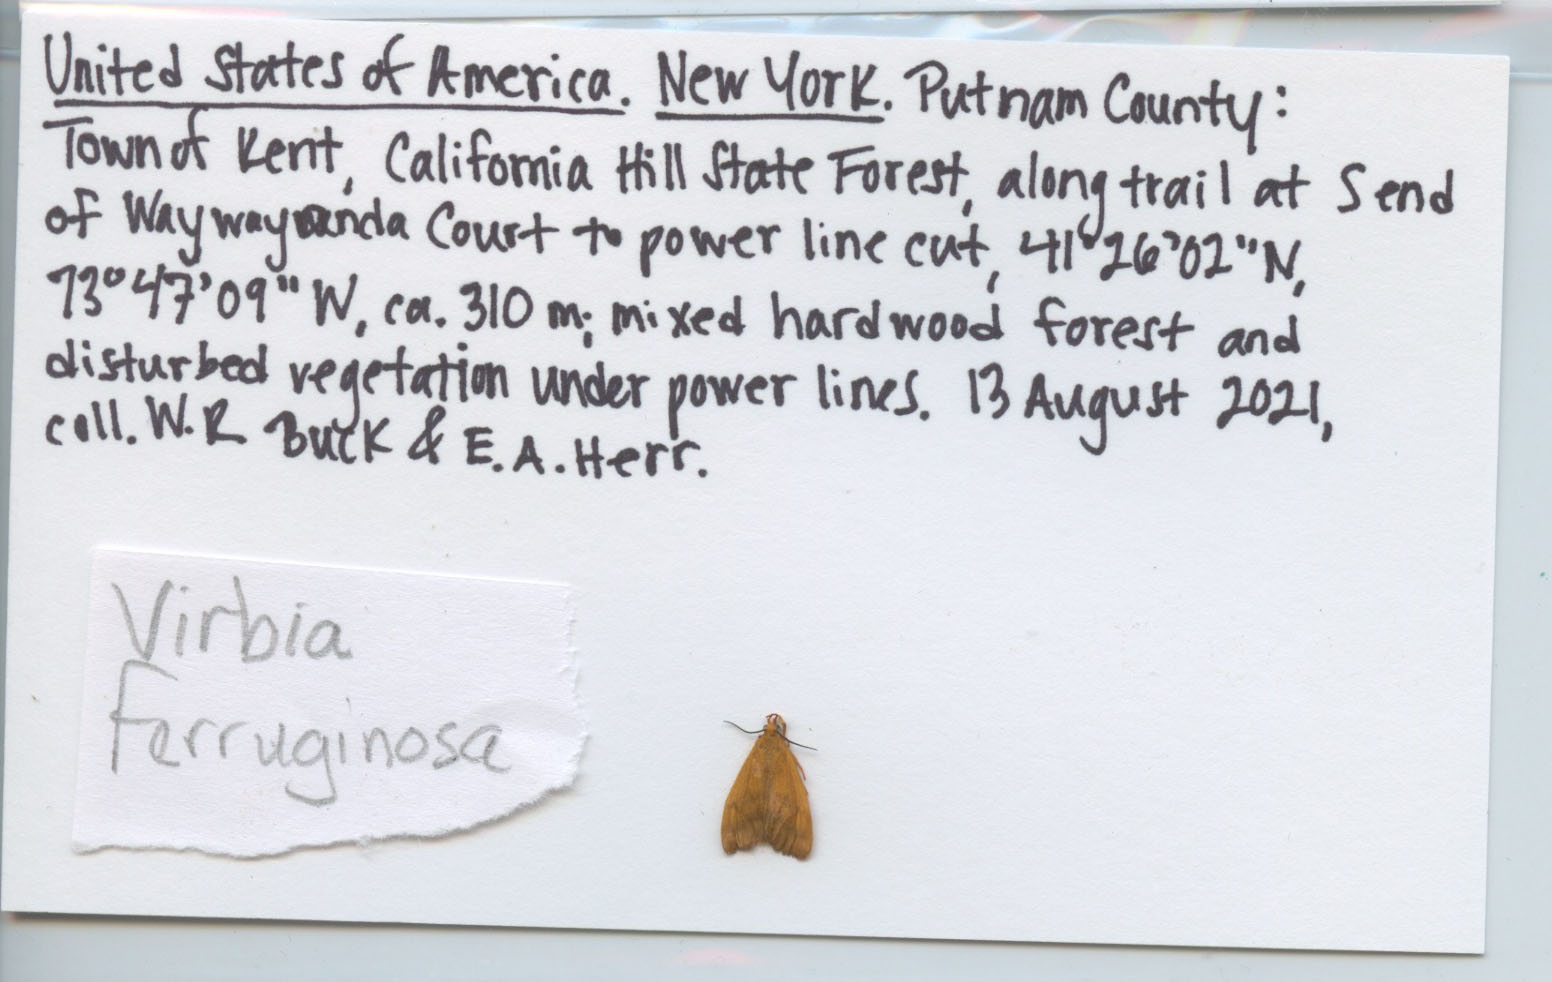 United States of America. New York. Putnam County:
Town of Kent, California Hill State Forest, along trail at S end
of Waywayanda Court to power line cut, 41°26'02"N,
73°47'09"W, ca. 310 m; mixed hardwood forest and
disturbed vegetation under power lines. 13 August 2021,
coll. W.R Buck & E.A. Herr.
Virbia
ferruginosa